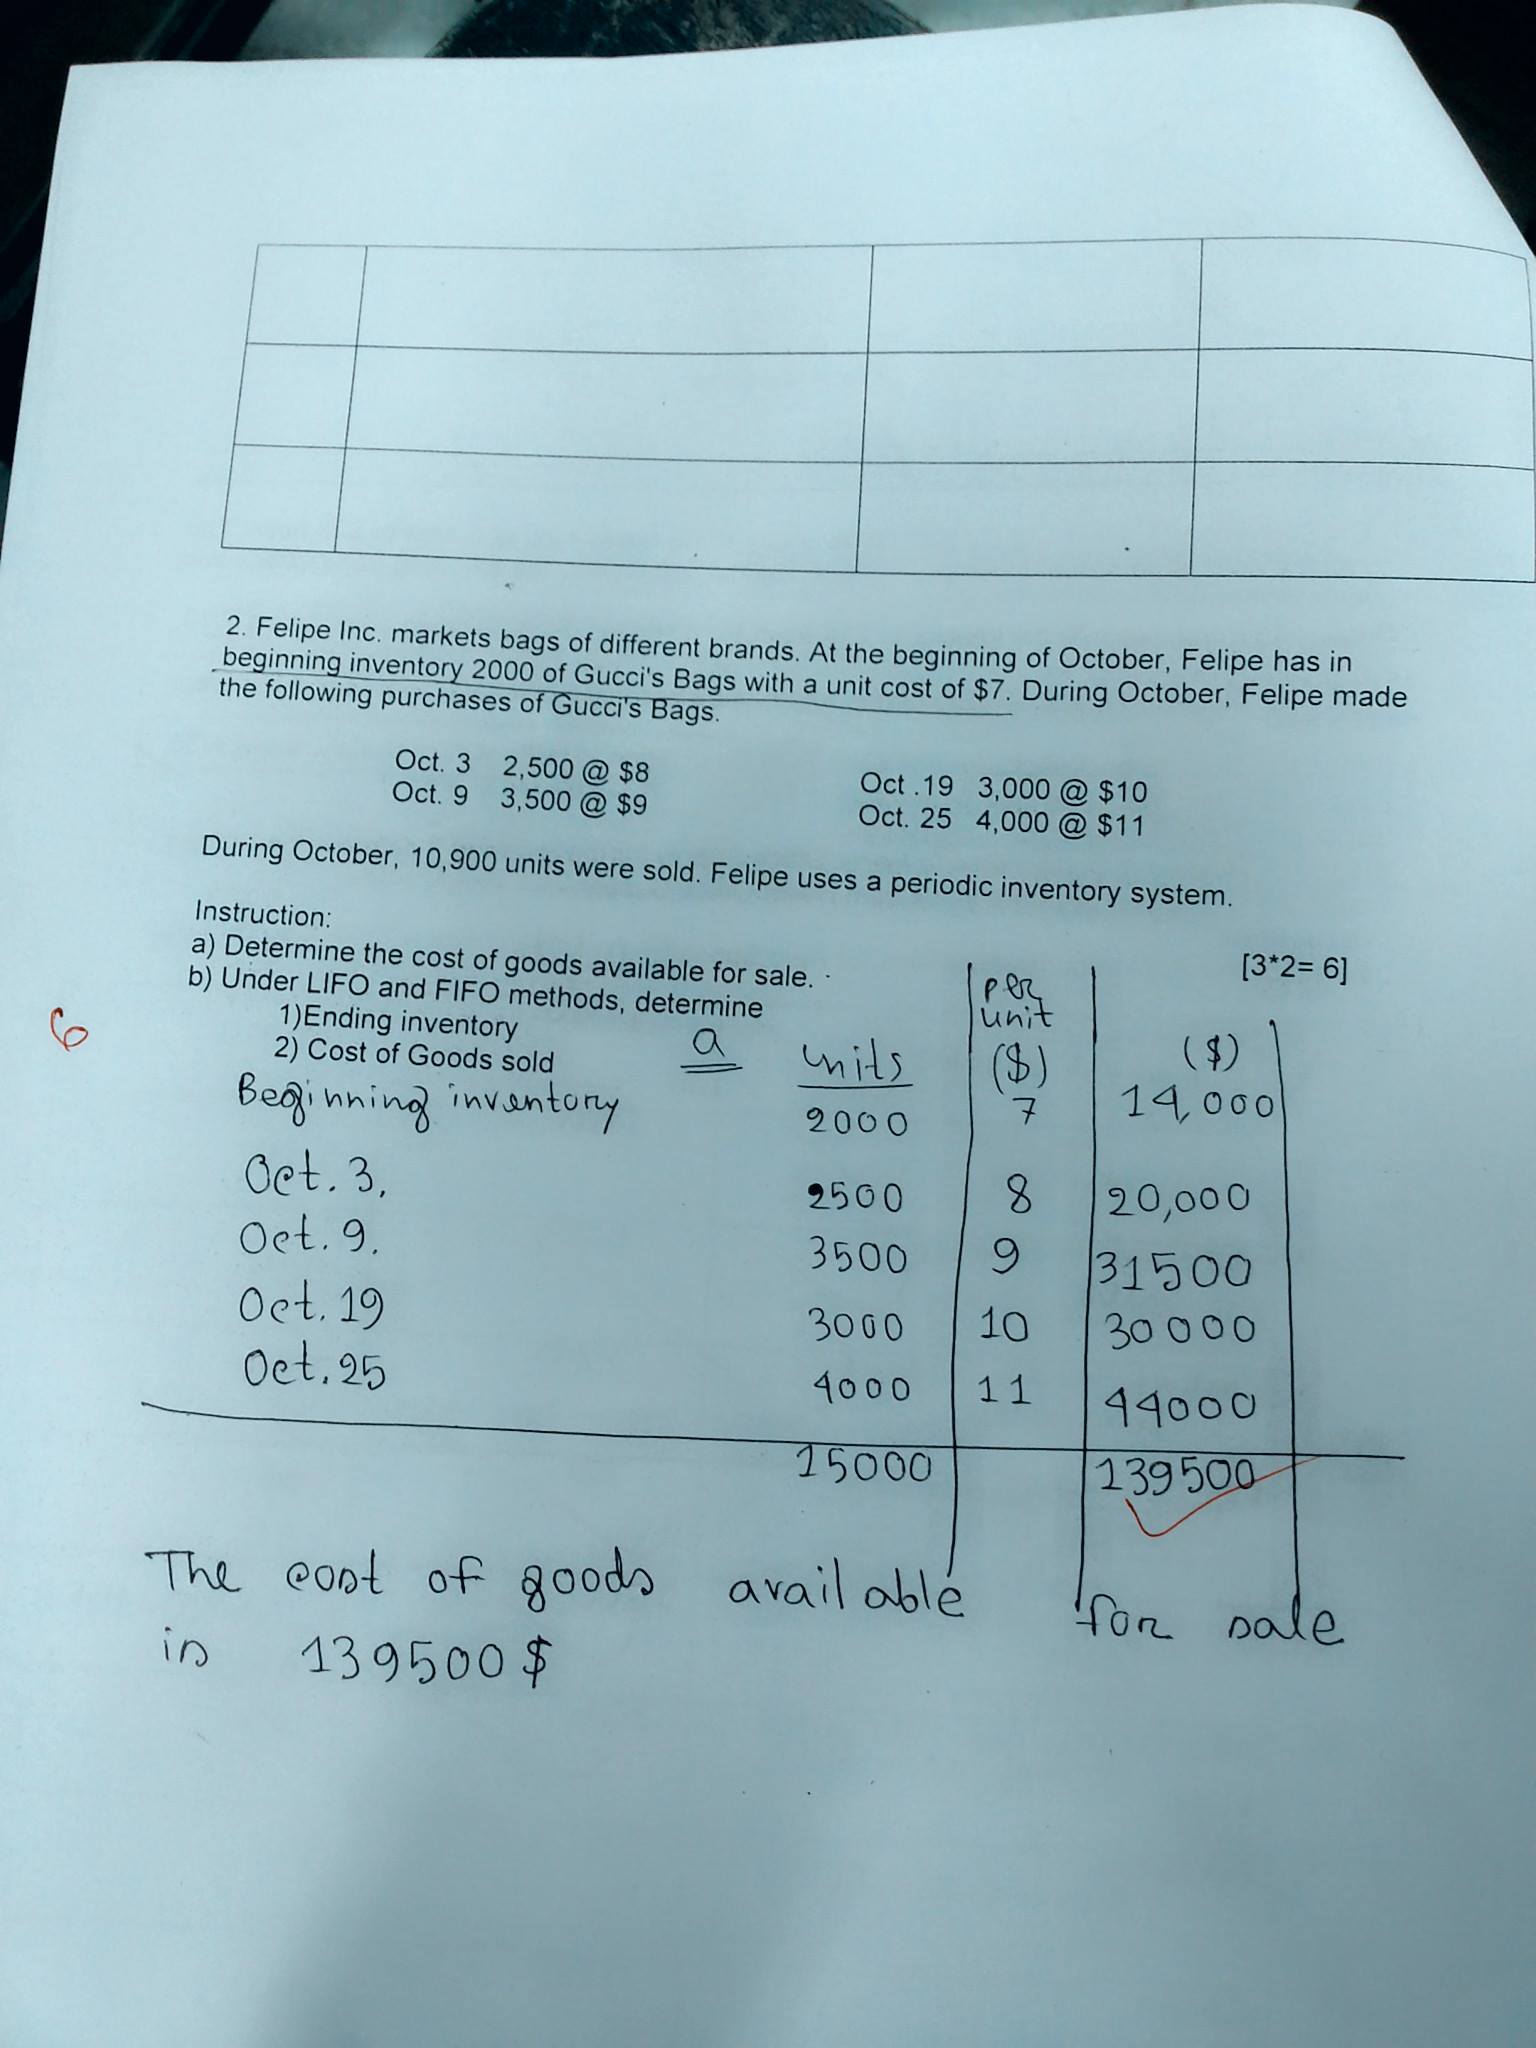 2. Felipe Inc. markets bags of different brands. At the beginning of October, Felipe has in
beginning inventory 2000 of Gucci's Bags with a unit cost of $7. During October, Felipe made
the following purchases of Gucci's Bags.
Oct. 3 2,500 @ $8 Oct .19 3,000 @ $10
Oct. 9 3,500 @ $9 Oct. 25 4,000 @ $11
During October, 10,900 units were sold. Felipe uses a periodic inventory system.
Instruction:
a) Determine the cost of goods available for sale. [3*2= 6]
b) Under LIFO and FIFO methods, determine
1)Ending inventory
2) Cost of Goods sold
6
a units per unit ($) ($)
Beginning inventory 2000 7 14,000
Oct. 3, 2500 8 20,000
Oct. 9. 3500 9 31500
Oct. 19 3000 10 30000
Oct. 25 4000 11 44000
15000 139500
The cost of goods available for sale
is 139500 $